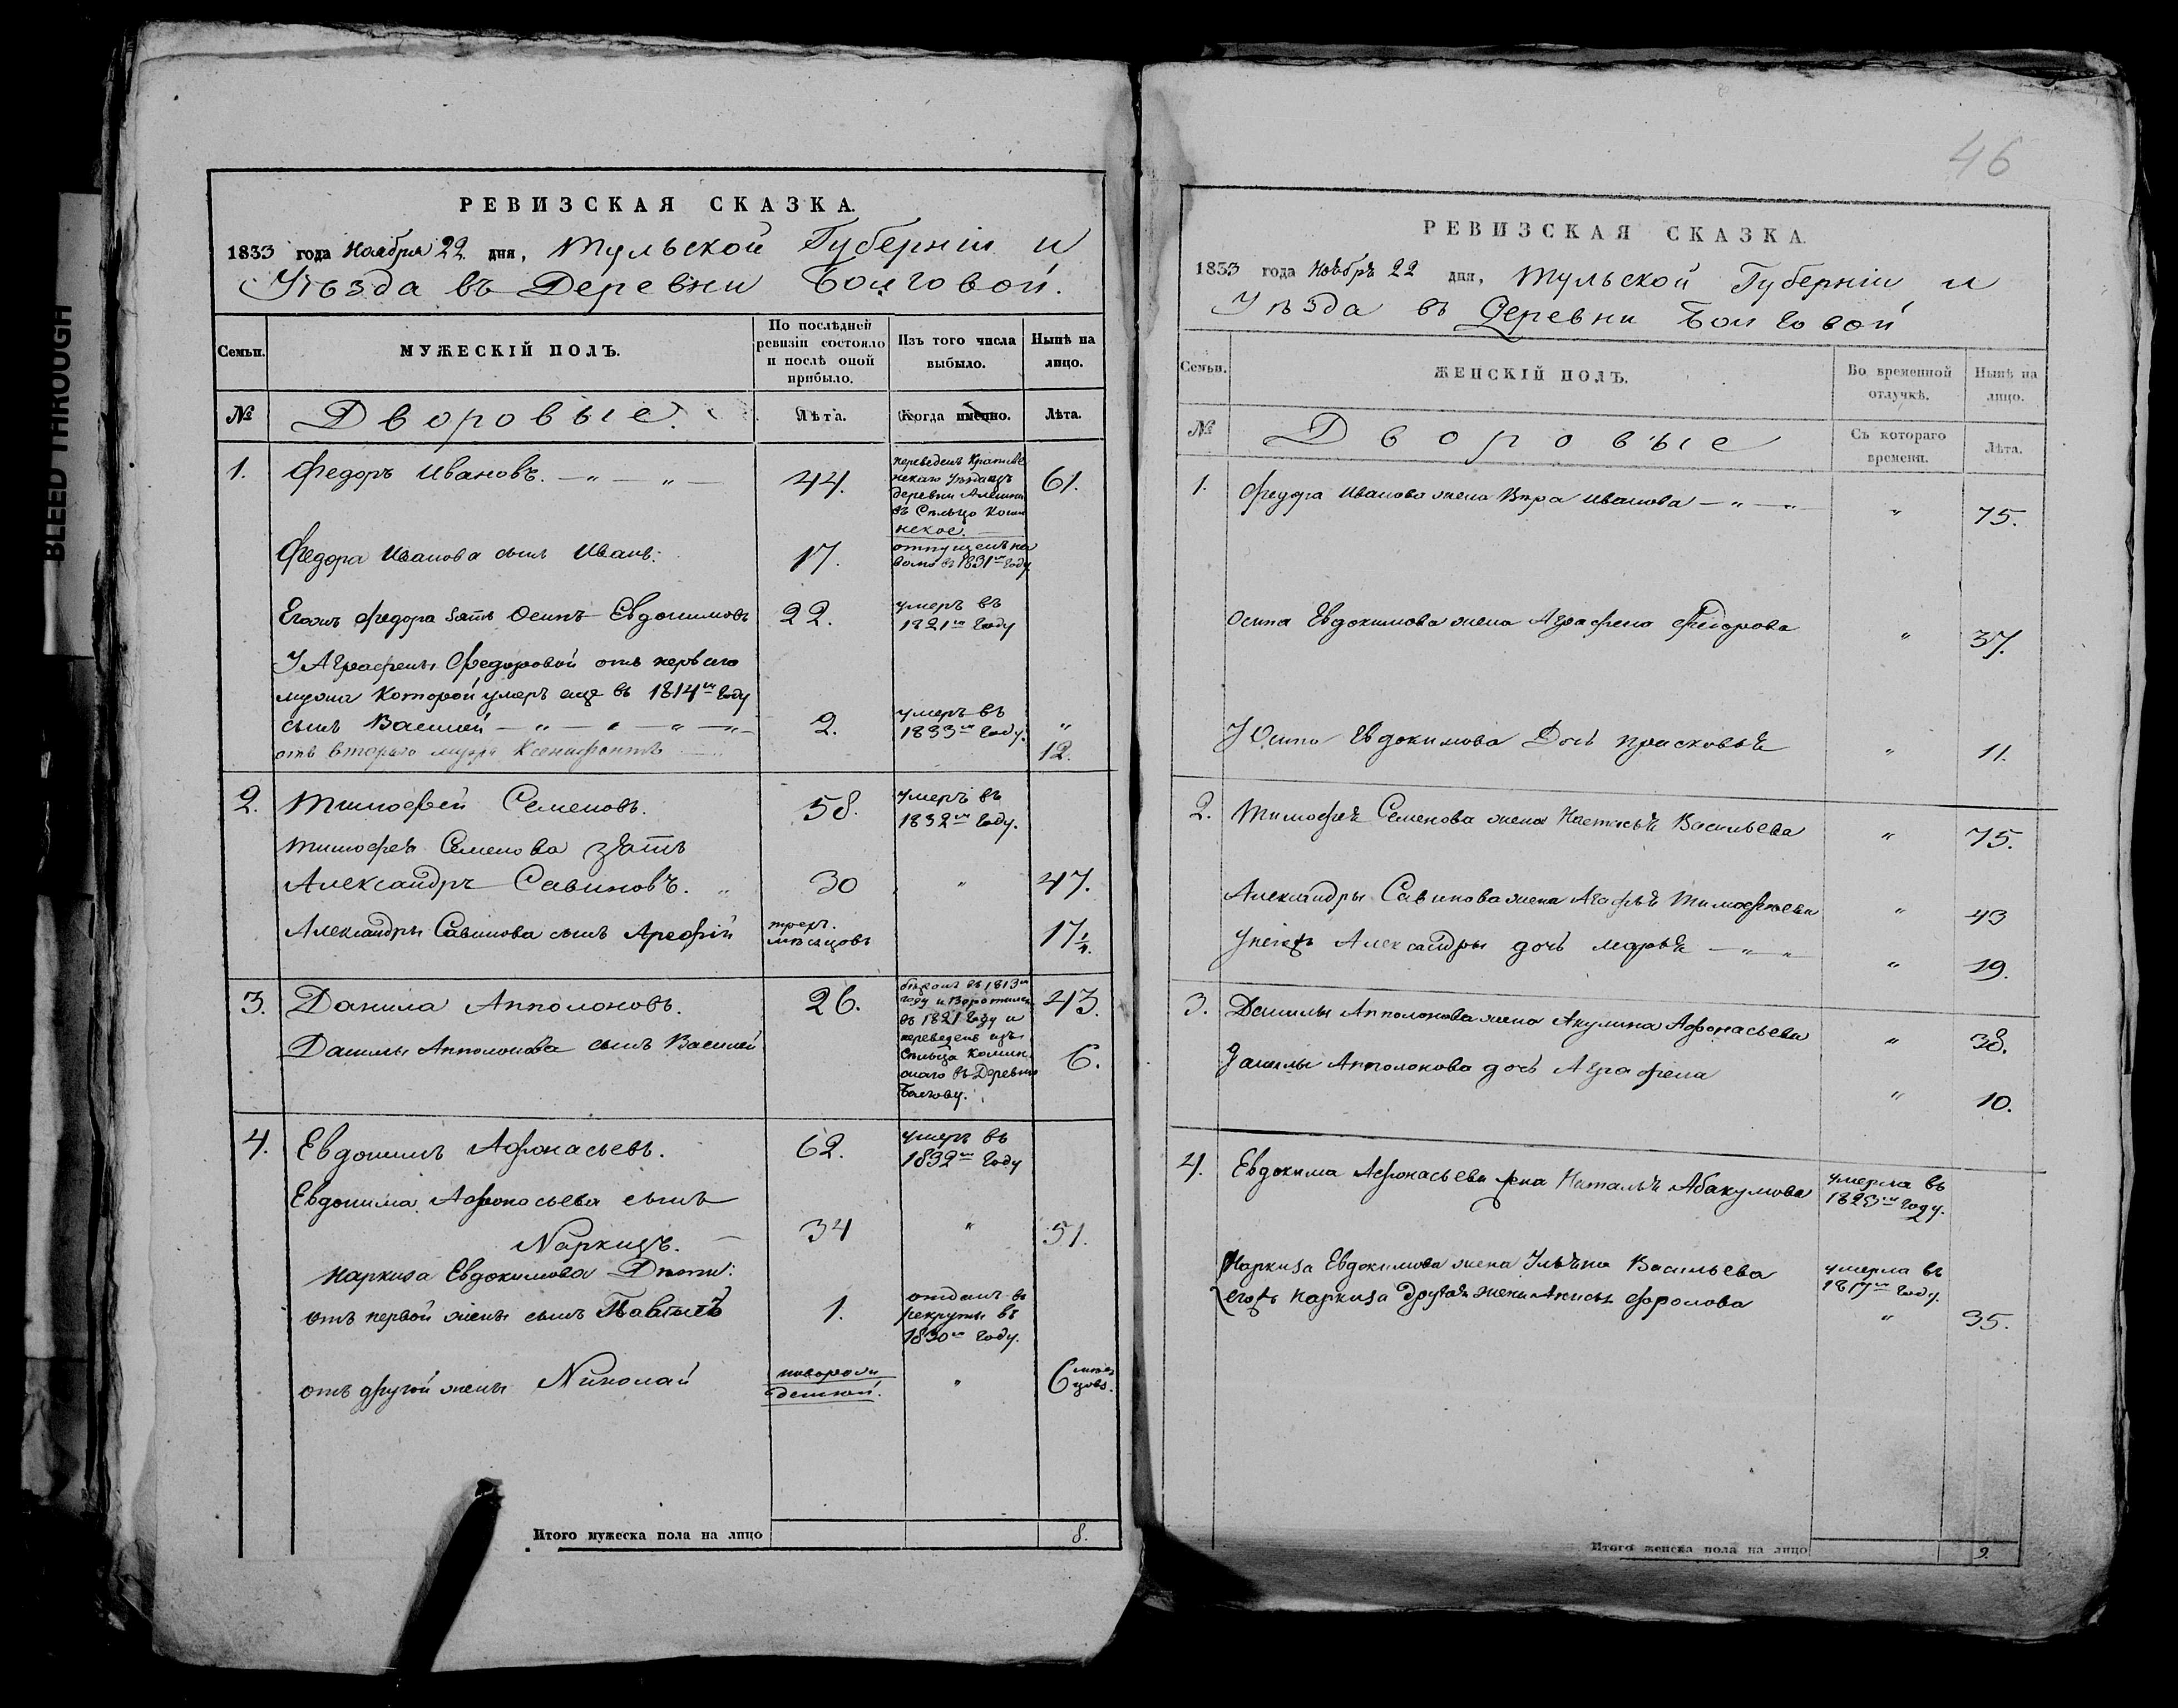 BLEED THROUGH
РЕВИЗСКАЯ СКАЗКА.
1833 года Ноября 22 дня, Тульской Губерніи и
Уѣзда въ Деревни Болговой.
Семьи.
МУЖЕСКІЙ ПОЛЪ.
По послѣдней ревизіи состояло и послѣ оной прибыло.
Изъ того числа выбыло.
Нынѣ на лицо.
№
Дворовые.
Лѣта.
Когда именно.
Лѣта.
1. Федоръ Ивановъ. 44. 61.
переведенъ
деревни
въ Сельцо
Федора Иванова сынъ Иванъ: 17. отпущенъ на волю въ 1831м году
Егожъ Федора зять Осипъ Евдокимовъ 22. умеръ въ 1821м году
У Аграфены Федоровой отъ перваго
мужа которой умеръ еще въ 1814м году
сынъ Василей 2. умеръ въ 1833м году. "
отъ втораго мужа Ксенифонтъ 12.
2. Тимофей Семеновъ. 58. умеръ въ 1832м году.
Тимофея Семенова зять
Александръ Савиновъ. " 30 " 47.
Александры Савинова сынъ Арефій трехъ мѣсяцовъ 17 1/4.
3. Данила Апполоновъ. 26. 43.
бѣжалъ въ 1813м
году и воротился
въ 1821 году и
переведенъ изъ
Сельца
въ Деревню
Болгову.
Данилы Апполонова сынъ Василей 6.
4. Евдокимъ Афонасьевъ. 62. умеръ въ 1832м году
Евдокима Афонасьева сынъ
Наркизъ. 34 " 51.
Наркиза Евдокимова Дѣти:
отъ первой жены сынъ Павелъ 1. отданъ въ рекруты въ 1830м году.
отъ другой жены Николай новорожденной. " 6 мѣсяцовъ.
Итого мужеска пола на лицо 8.
46
РЕВИЗСКАЯ СКАЗКА.
1833 года Ноябрѣ 22 дня, Тульской Губерніи и
Уѣзда въ Деревни Болговой
Семьи.
ЖЕНСКІЙ ПОЛЪ.
Во временной отлучкѣ.
Нынѣ на лицо.
№
Дворовые
Съ котораго времени.
Лѣта.
1. Федора Иванова жена Вѣра Иванова " 75.
Осипа Евдокимова жена Аграфена Федорова " 37.
У Осипа Евдокимова Дочь Прасковья " 11.
2. Тимофея Семенова жена Настасья Васильева " 75.
Александры Савинова жена Агафья Тимофѣева " 43
У негожъ Александры дочь Марья " 19.
3. Данилы Апполонова жена Акулина Афонасьева " 38.
Данилы Апполонова дочь Аграфена " 10.
4. Евдокима Афонасьева жена Наталья Абакумова умерла въ 1823м году.
Наркиза Евдокимова жена Ульяна Васильева умерла въ 1817м году.
Егожъ Наркиза другая жена Анисья Фролова " 35.
Итого женска пола на лицо 9.